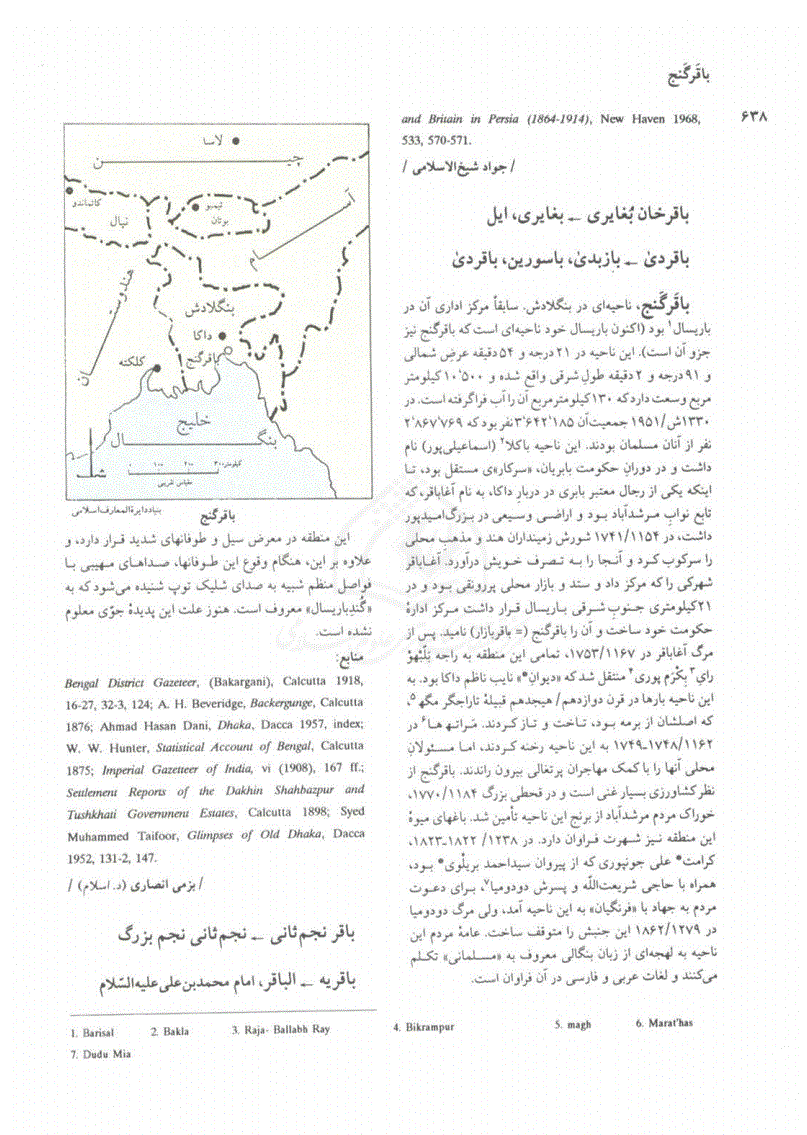 باقَرگَنج
۶۳۸
and Britain in Persia (1864-1914), New Haven 1968,
533, 570-571.
/ جواد شیخ‌الاسلامی /
باقرخان بُغایری ← بغایری، ایل
باقردیٰ ← بازبدیٰ، باسورین، باقردیٰ
باقَرگَنج، ناحیه‌ای در بنگلادش. سابقاً مرکز اداری آن در
باریسال۱ بود (اکنون باریسال خود ناحیه‌ای است که باقرگنج نیز
جزو آن است). این ناحیه در ۲۱ درجه و ۵۴ دقیقه عرضِ شمالی
و ۹۱ درجه و ۲ دقیقه طولِ شرقی واقع شده و ۱۰٬۵۰۰ کیلومتر
مربع وسعت دارد که ۱۳۰ کیلومترمربع آن را آب فراگرفته است. در
۱۳۳۰ش/۱۹۵۱ جمعیت‌آن ۳٬۶۴۲٬۱۸۵ نفر بود که ۲٬۸۶۷٬۷۶۹
نفر از آنان مسلمان بودند. این ناحیه باکلا۲ (اسماعیلی‌پور) نام
داشت و در دورانِ حکومت بابریان، «سرکار»ی مستقل بود، تا
اینکه یکی از رجال معتبر بابری در دربارِ داکا، به نام آغاباقر، که
تابع نواب مرشدآباد بود و اراضـی وسـیعی در بـزرگ‌امـیدپور
داشت، در ۱۷۴۱/۱۱۵۴ شورش زمینداران هند و مذهبِ محلی
را سرکوب کـرد و آنـجا را بـه تـصرف خـویش درآورد. آغـاباقر
شهرکی را که مرکز داد و ستد و بازار محلی پررونقی بـود و در
۲۱کیلومتری جنـوبِ شـرقی بـاریسال قـرار داشت مـرکز ادارهٔ
حکومت خود ساخت و آن را باقرگنج (= باقربازار) نامید. پس از
مرگ آغاباقر در ۱۷۵۳/۱۱۶۷، تمامی این منطقه به راجه بَلّبْهْوْ
رایِ۳ بِکْرَم پوری۴ منتقل شد که «دیوانِ*» نایب ناظم داکا بود. به
این ناحیه بارها در قرن دوازدهم/ هیجدهم قبیلهٔ تاراجگر مگهـ۵،
که اصلشان از برمه بـود، تـاخت و تـاز کـردند. مَـراتـهه هـا۶ در
۱۷۴۸/۱۱۶۲ـ۱۷۴۹ به این ناحیه رخنه کـردند، امـا مسـئولانِ
محلی آنها را با کمک مهاجران پرتغالی بیرون راندند. باقرگنج از
نظر کشاورزی بسیار غنی است و در قحطی بزرگ ۱۷۷۰/۱۱۸۴،
خوراک مردم مرشدآباد از برنج این ناحیه تأمین شد. باغهای میوهٔ
این منطقه نیـز شـهرت فـراوان دارد. در ۱۲۳۸/ ۱۸۲۲ـ۱۸۲۳،
کرامت* علی جونپوری که از پیروان سیداحمد بریلْوی* بـود،
همراه با حاجی شریعت‌اللّه و پسرش دودومیا۷، بـرای دعـوت
مردم به جهاد با «فرنگیان» به این ناحیه آمد، ولی مرگ دودومیا
در ۱۸۶۲/۱۲۷۹ این جنبش را متوقف ساخت. عامهٔ مردم این
ناحیه به لهجه‌ای از زبان بنگالی معروف به «مسلمانی» تکـلم
می‌کنند و لغات عربی و فارسی در آن فراوان است.
لاسا
چیـن
کاتماندو
نپال
تیمپو
بوتان
آسام
هندوستان
بنگلادش
داکا
باقرگنج
کلکته
خلیج
بنگـال
شـ
۰ ۱۰۰ ۲۰۰ ۳۰۰کیلومتر
مقیاس تقریبی
بنیاد دایرةالمعارف اسلامی
باقرگنج
این منطقه در معرض سیل و طوفانهای شدید قـرار دارد، و
علاوه بر این، هنگام وقوع این طـوفانها، صـداهـای مـهیبی بـا
فواصل منظم شبیه به صدای شلیک توپ شنیده می‌شود که به
«گُندِباریسال» معروف است. هنوز علت این پدیدهٔ جوّی معلوم
نشده است.
منابع:
Bengal District Gazeteer, (Bakargani), Calcutta 1918,
16-27, 32-3, 124; A. H. Beveridge, Backergunge, Calcutta
1876; Ahmad Hasan Dani, Dhaka, Dacca 1957, index;
W. W. Hunter, Statistical Account of Bengal, Calcutta
1875; Imperial Gazetteer of India, vi (1908), 167 ff.;
Settlement Reports of the Dakhin Shahbazpur and
Tushkhati Government Estates, Calcutta 1898; Syed
Muhammed Taifoor, Glimpses of Old Dhaka, Dacca
1952, 131-2, 147.
/ بزمی انصاری (د. اسلام) /
باقر نجم ثانی ← نجم ثانی نجم بزرگ
باقریه ← الباقر، امام محمدبن علی علیه‌السّلام
1. Barisal 2. Bakla 3. Raja- Ballabh Ray 4. Bikrampur 5. magh 6. Marat'has
7. Dudu Mia